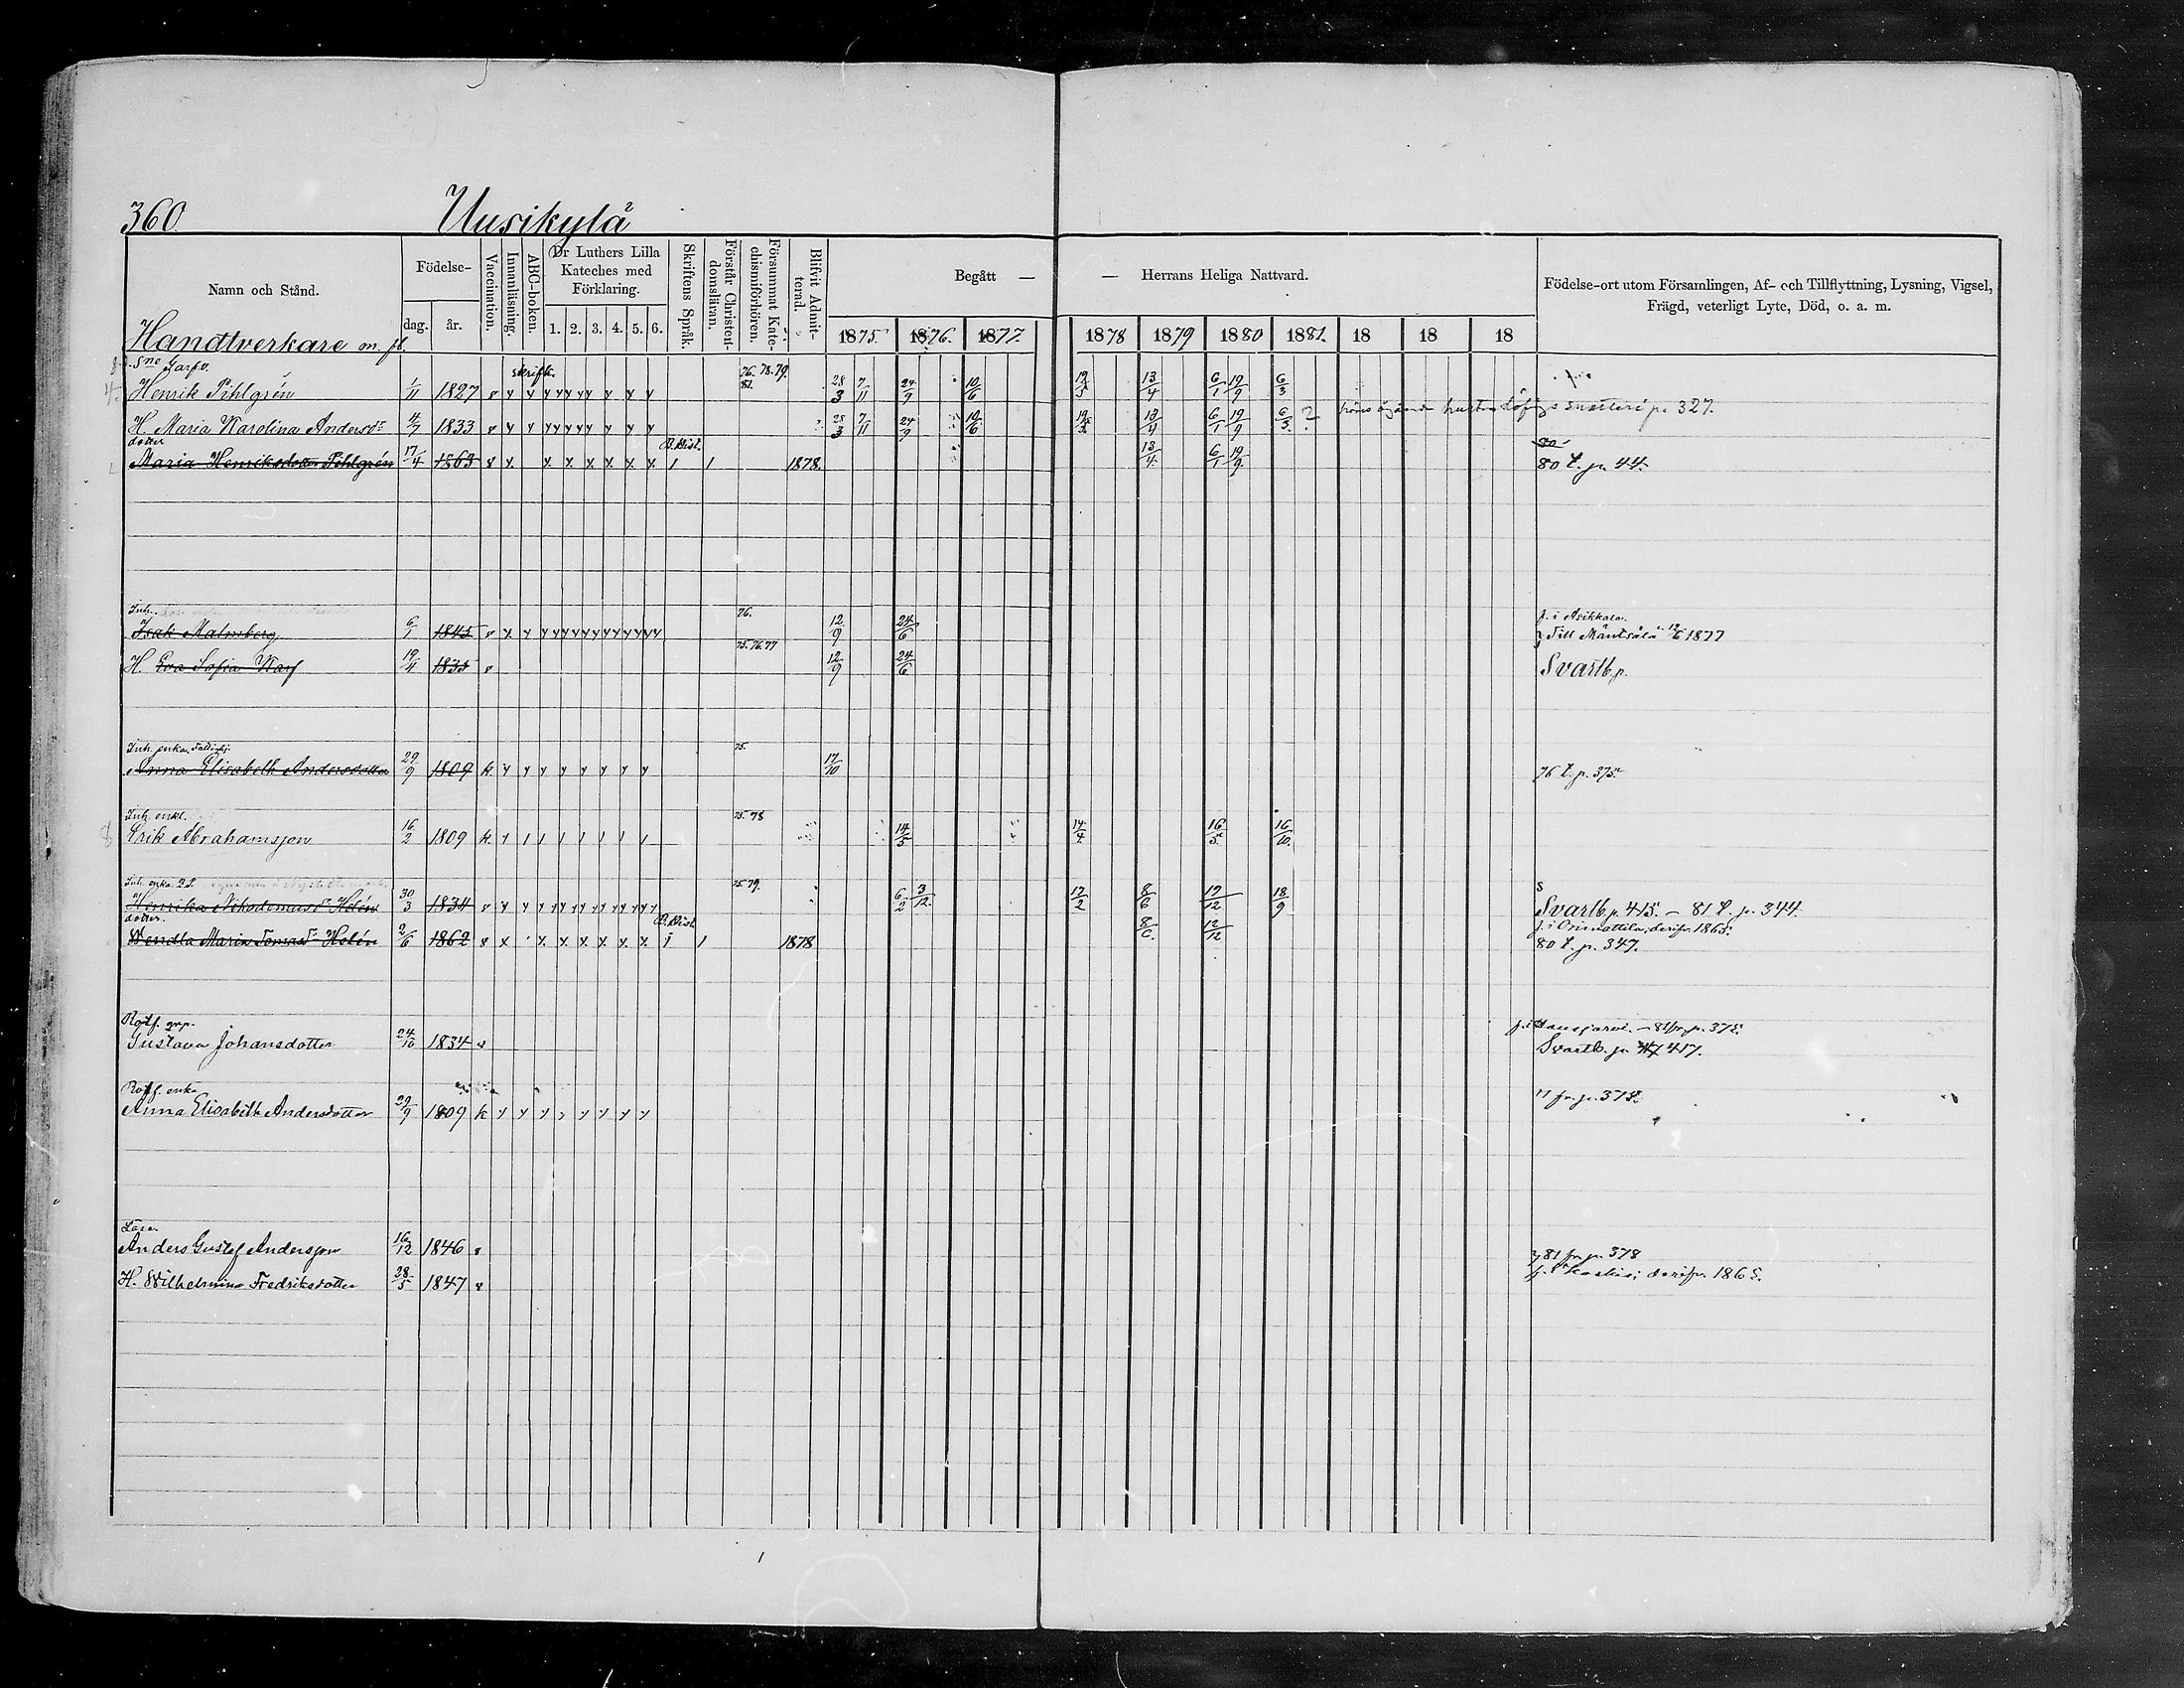 360. Uusikylä
Namn och Stånd. Födelse- dag. år. Vaccination. Innanläsning. ABC-boken. Dr Luthers Lilla Kateches med Förklaring. 1. 2. 3. 4. 5. 6. Skriftens Språk. Förstår Christendomsläran. Försummat Katechismiförhören. Blifvit Admitterad. Begått — — Herrans Heliga Nattvard. Födelse-ort utom Församlingen, Af- och Tillflyttning, Lysning, Vigsel, Frägd, veterligt Lyte, Död, o. a. m.
1875. 1876. 1877. 1878 1879 1880 1881. 18 18 18
Handtverkare m. fl.
skrifk. 76. 78. 79. 81.
Henrik Pihlgrén 1/11 1827 v y y y y y y y y y 28/3 7/11 24/9 10/6 19/5 13/4 6/1 19/9 6/3
H. Maria Karolina Andersdr 4/7 1833 v y y y y y y y y y 28/3 7/11 24/9 10/6 19/5 13/4 6/1 19/9 6/3 ? hustru p. 327.
dotter B. Hist. 80
Maria Henriksdotter Pihlgrén 17/4 1863 v x x x x x x x / / 1878. 13/4 6/1 19/9 80 t. p. 44.
Inh. 76. f. i Asikkala.
Isak Malmberg 6/1 1845 v x y y y y y y y y y y y y 12/9 24/6 Till Mäntsälä 12/6 1877
75. 76. 77
H. Eva Sofia Karf 19/4 1835 v 12/9 24/6 Svartb. p.
Inh. enka 75.
Anna Elisabeth Andersdotter 29/9 1809 k y y y y y y y y 17/10 76 t. p. 375.
Inh. enkl. 75. 78
Erik Abrahamsson 16/2 1809 k. y / / / / / / / 14/5 14/4 16/5 16/10.
Inh. enka 75 79.
Henrika Nikodemusdr Helén 30/3 1834 v y y y y y y y y y y y y 6/2 3/12. 17/2 8/6 19/12 18/9 Svartb. p. 415. – 81 t. p. 344.
dotter. B. Hist. f. i Orimattila, derifr. 1865.
Wendla Maria Tomasdr Helén 2/6 1862 v x x x x x x x / / 1878 8/6. 12/12 80 t. p. 347.
Rotf. qvp. f. i Hausjärvi. – 81 fr. p. 375.
Gustava Johansdotter 24/10 1834 v Svartb. p. 417.
Rotf. enka
Anna Elisabeth Andersdotter 29/9 1809 k y y y y y y y y 77 fr. p. 375.
Lösa.
Anders Gustaf Andersson 16/12 1846 v 81 fr. p. 378
H. Wilhelmina Fredriksdotter 28/5 1847 v f. i Koskis; derifr. 1865.